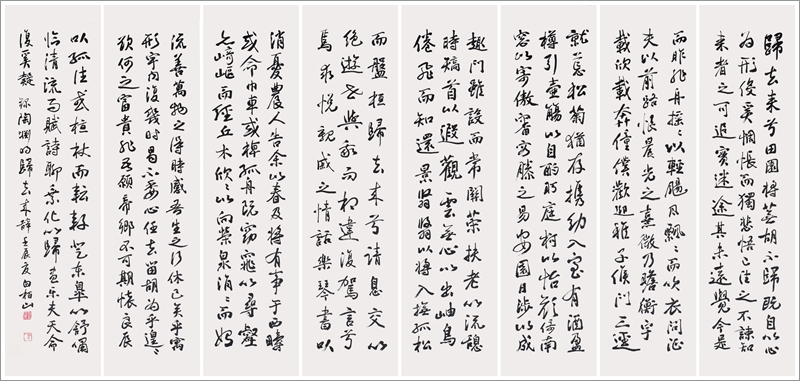 歸去來兮田園將蕪胡不歸既自以心
為形役奚惆悵而獨悲悟已往之不諫知
來者之可追實迷途其未遠覺今是
而昨非舟搖々以輕颺風飄々而吹衣問征
夫以前路恨晨光之熹微乃瞻衡宇
載欣載奔僮僕歡迎稚子候門三逕
就荒松菊猶存攜幼入室有酒盈
樽引壺觴以自酌眄庭柯以怡顏倚南
窗以寄傲審容膝之易安園日涉以成
趣門雖設而常關策扶老以流憩
時矯首以遐觀雲無心以出岫鳥
倦飛而知還景翳翳以將入撫孤松
而盤桓歸去來兮請息交以
絕遊世與我而相違復駕言兮
焉求悅親戚之情話樂琴書以
消憂農人告余以春及將有事于西疇
或命巾車或棹孤舟既窈窕以尋壑
亦崎嶇而經丘木欣々以向榮泉涓々而始
流善萬物之得時感吾生之行休已矣乎寓
形宇內復幾時曷不委心任去留胡為乎遑々
欲何之富貴非吾願帝鄉不可期懷良辰
以孤往或植杖而耘耔登東皋以舒嘯
臨清流而賦詩聊乘化以歸盡樂夫天命
復奚疑 陶淵明歸去來辭 壬辰夏白柏山